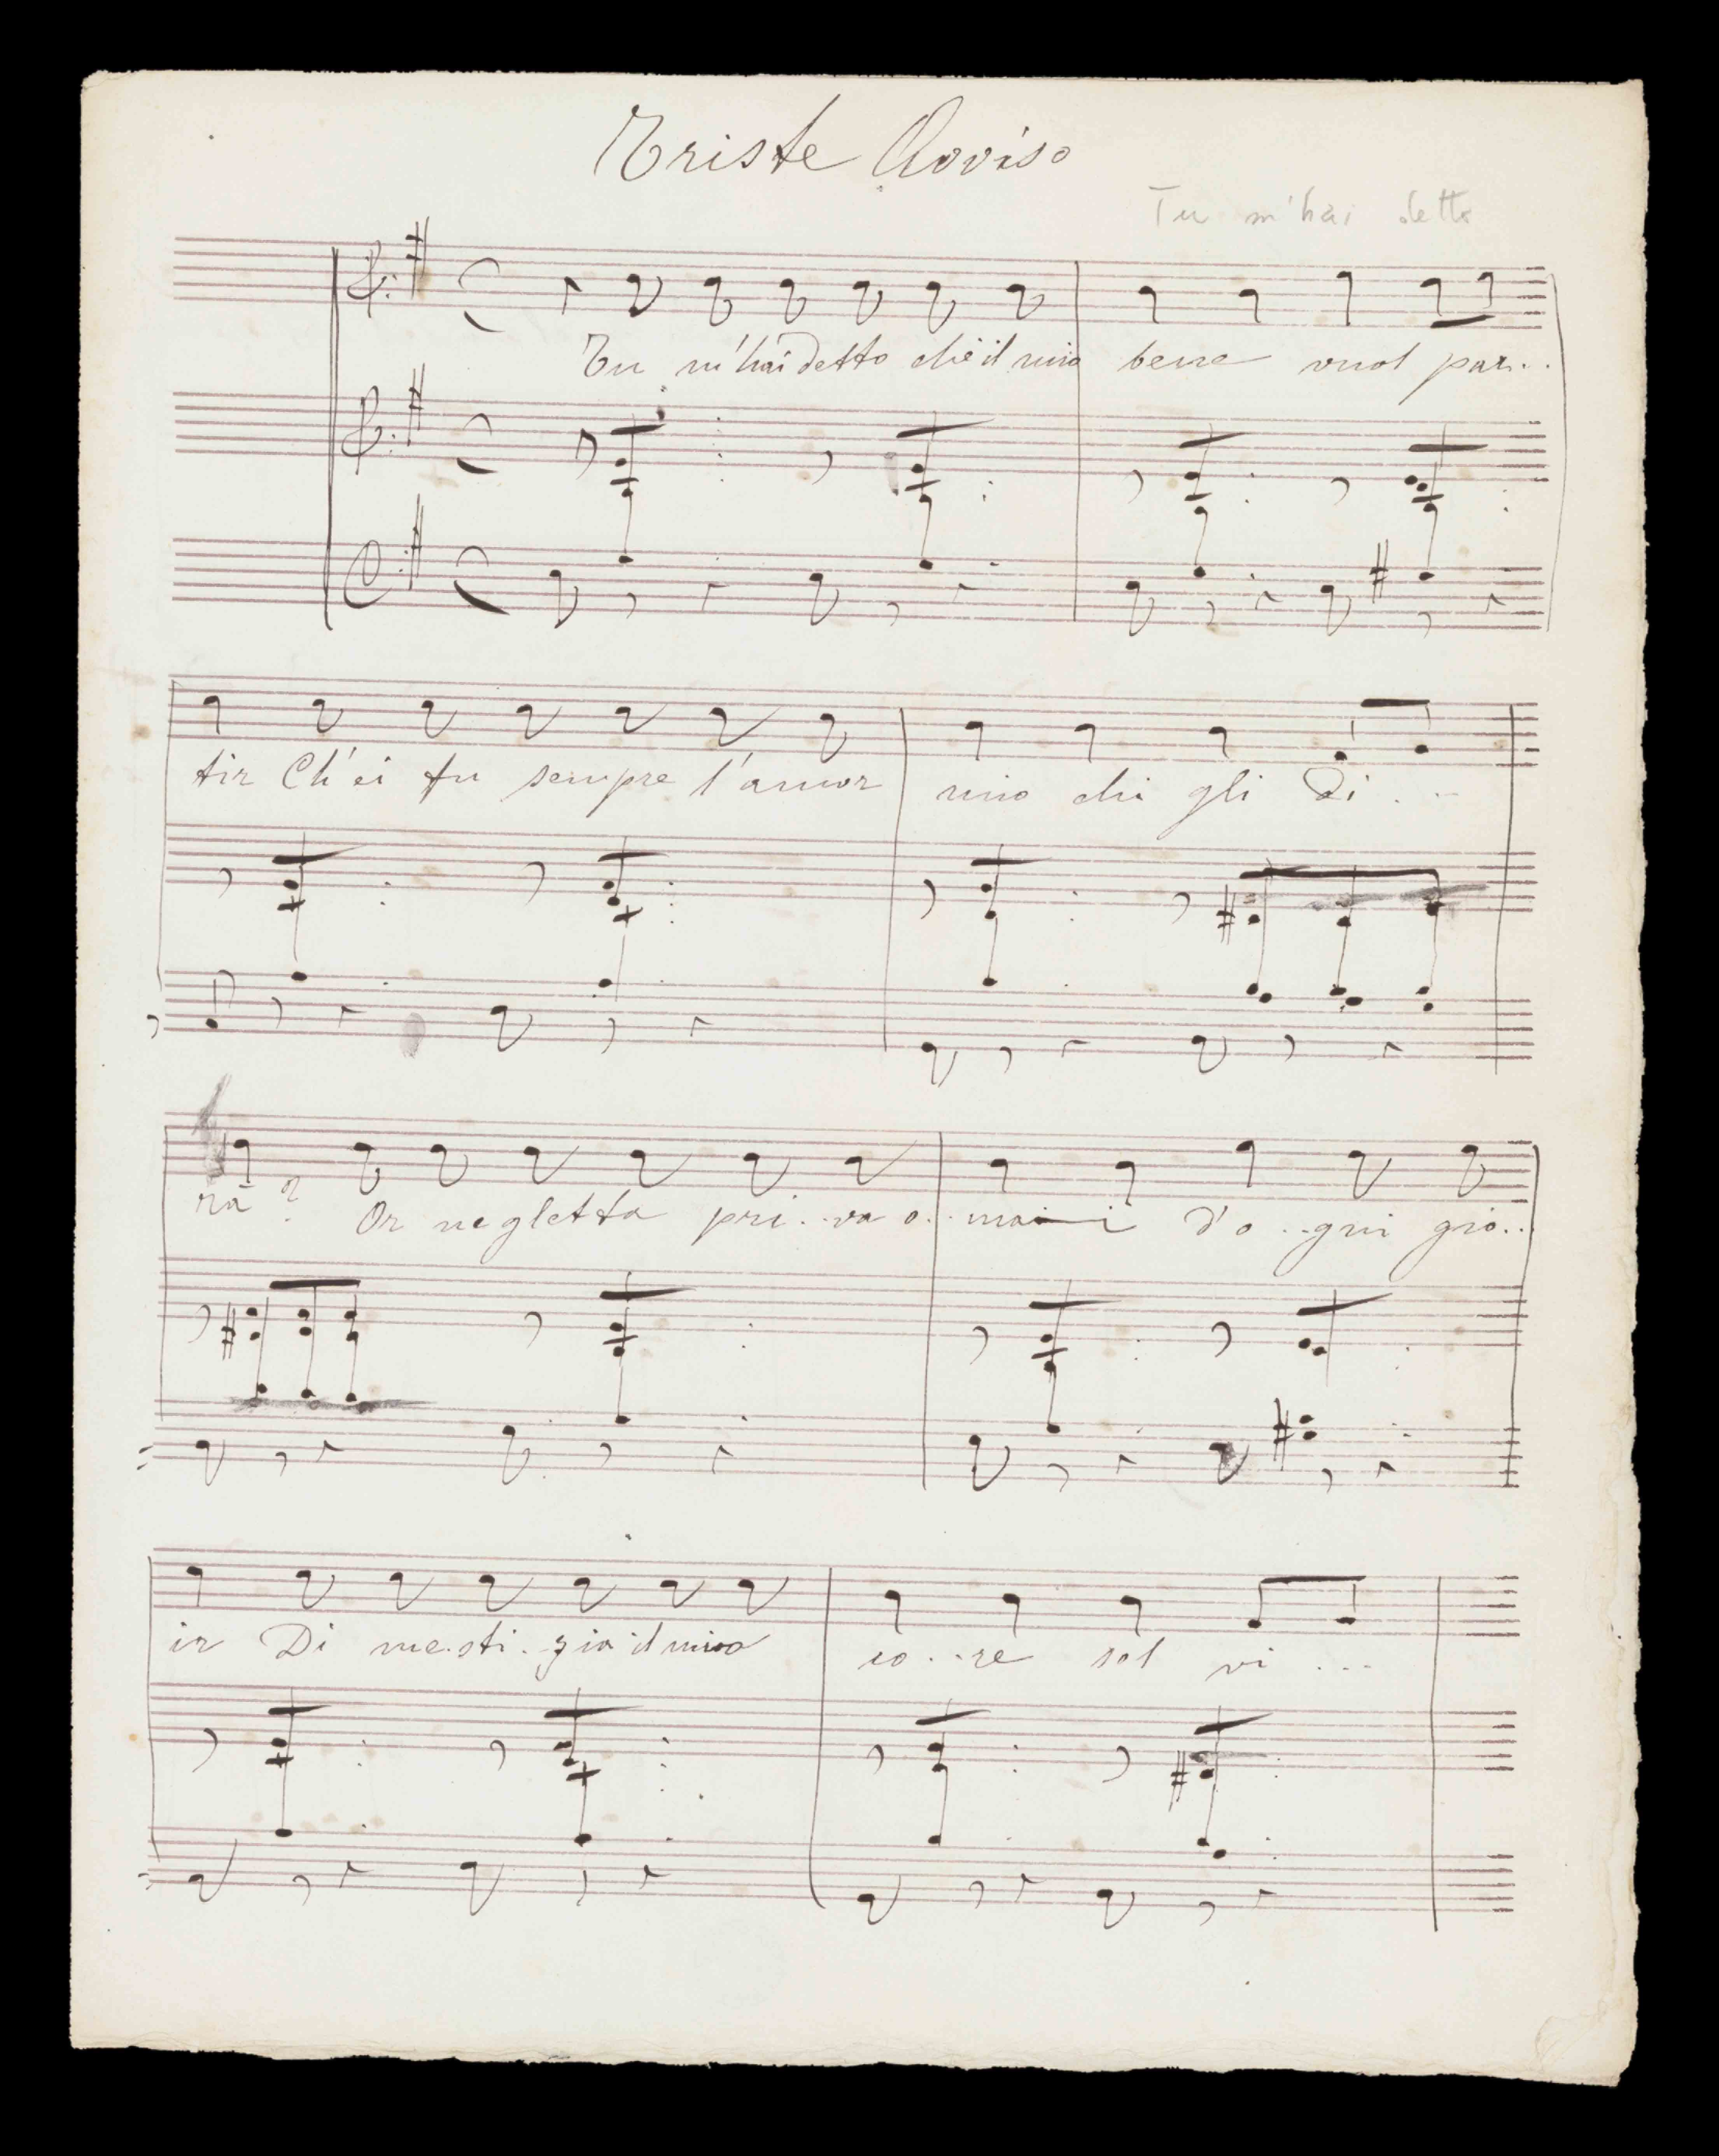 Triste Avviso
Tu m'hai detto
Tu m'hai detto che il mio bene vuol par..
tir Ch'ei fu sempre l'amor mio chi gli Di . ..
rà? Or negletta pri...va o...mai d'o...gni gio...
ir Di me.sti.zia il mio co...re sol vi ...